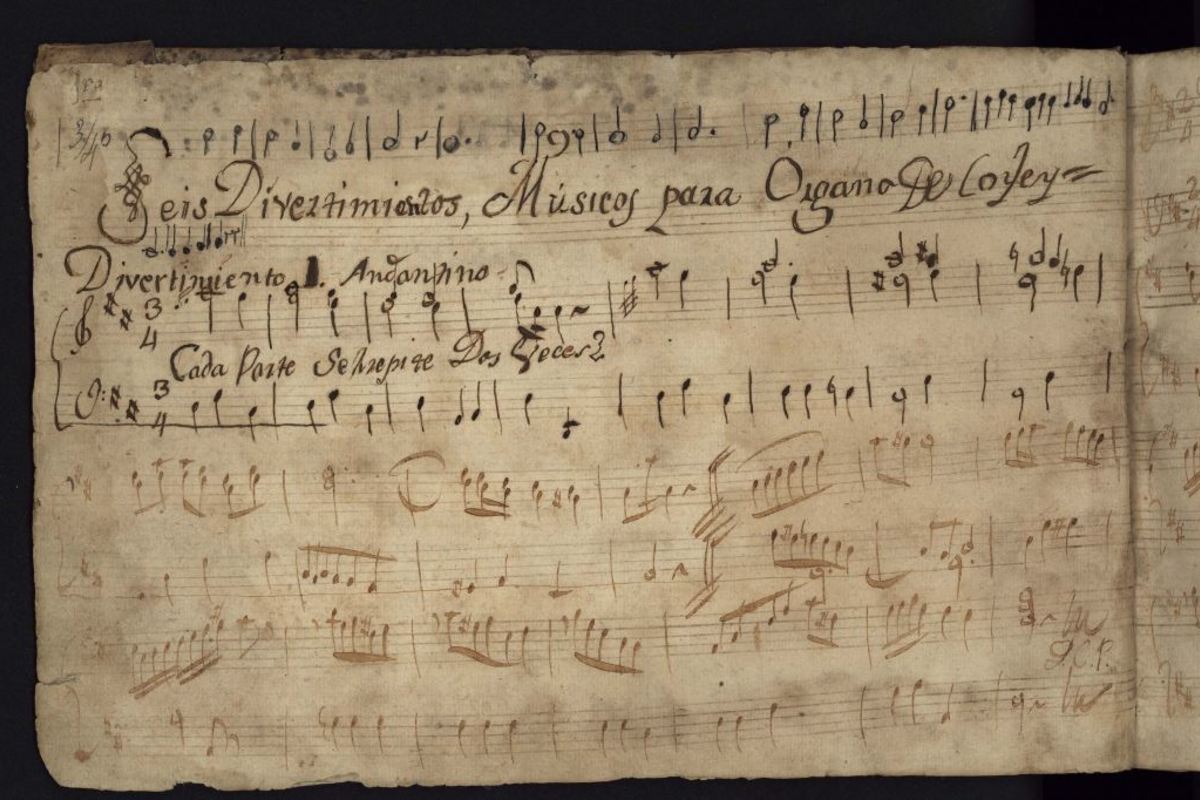 Seis Divertimientos, Músicos para Organo De
Divertimiento 1. Andantino
3
4
Cada Parte Se hrepite Dos Veces
3
4
D.C.P.